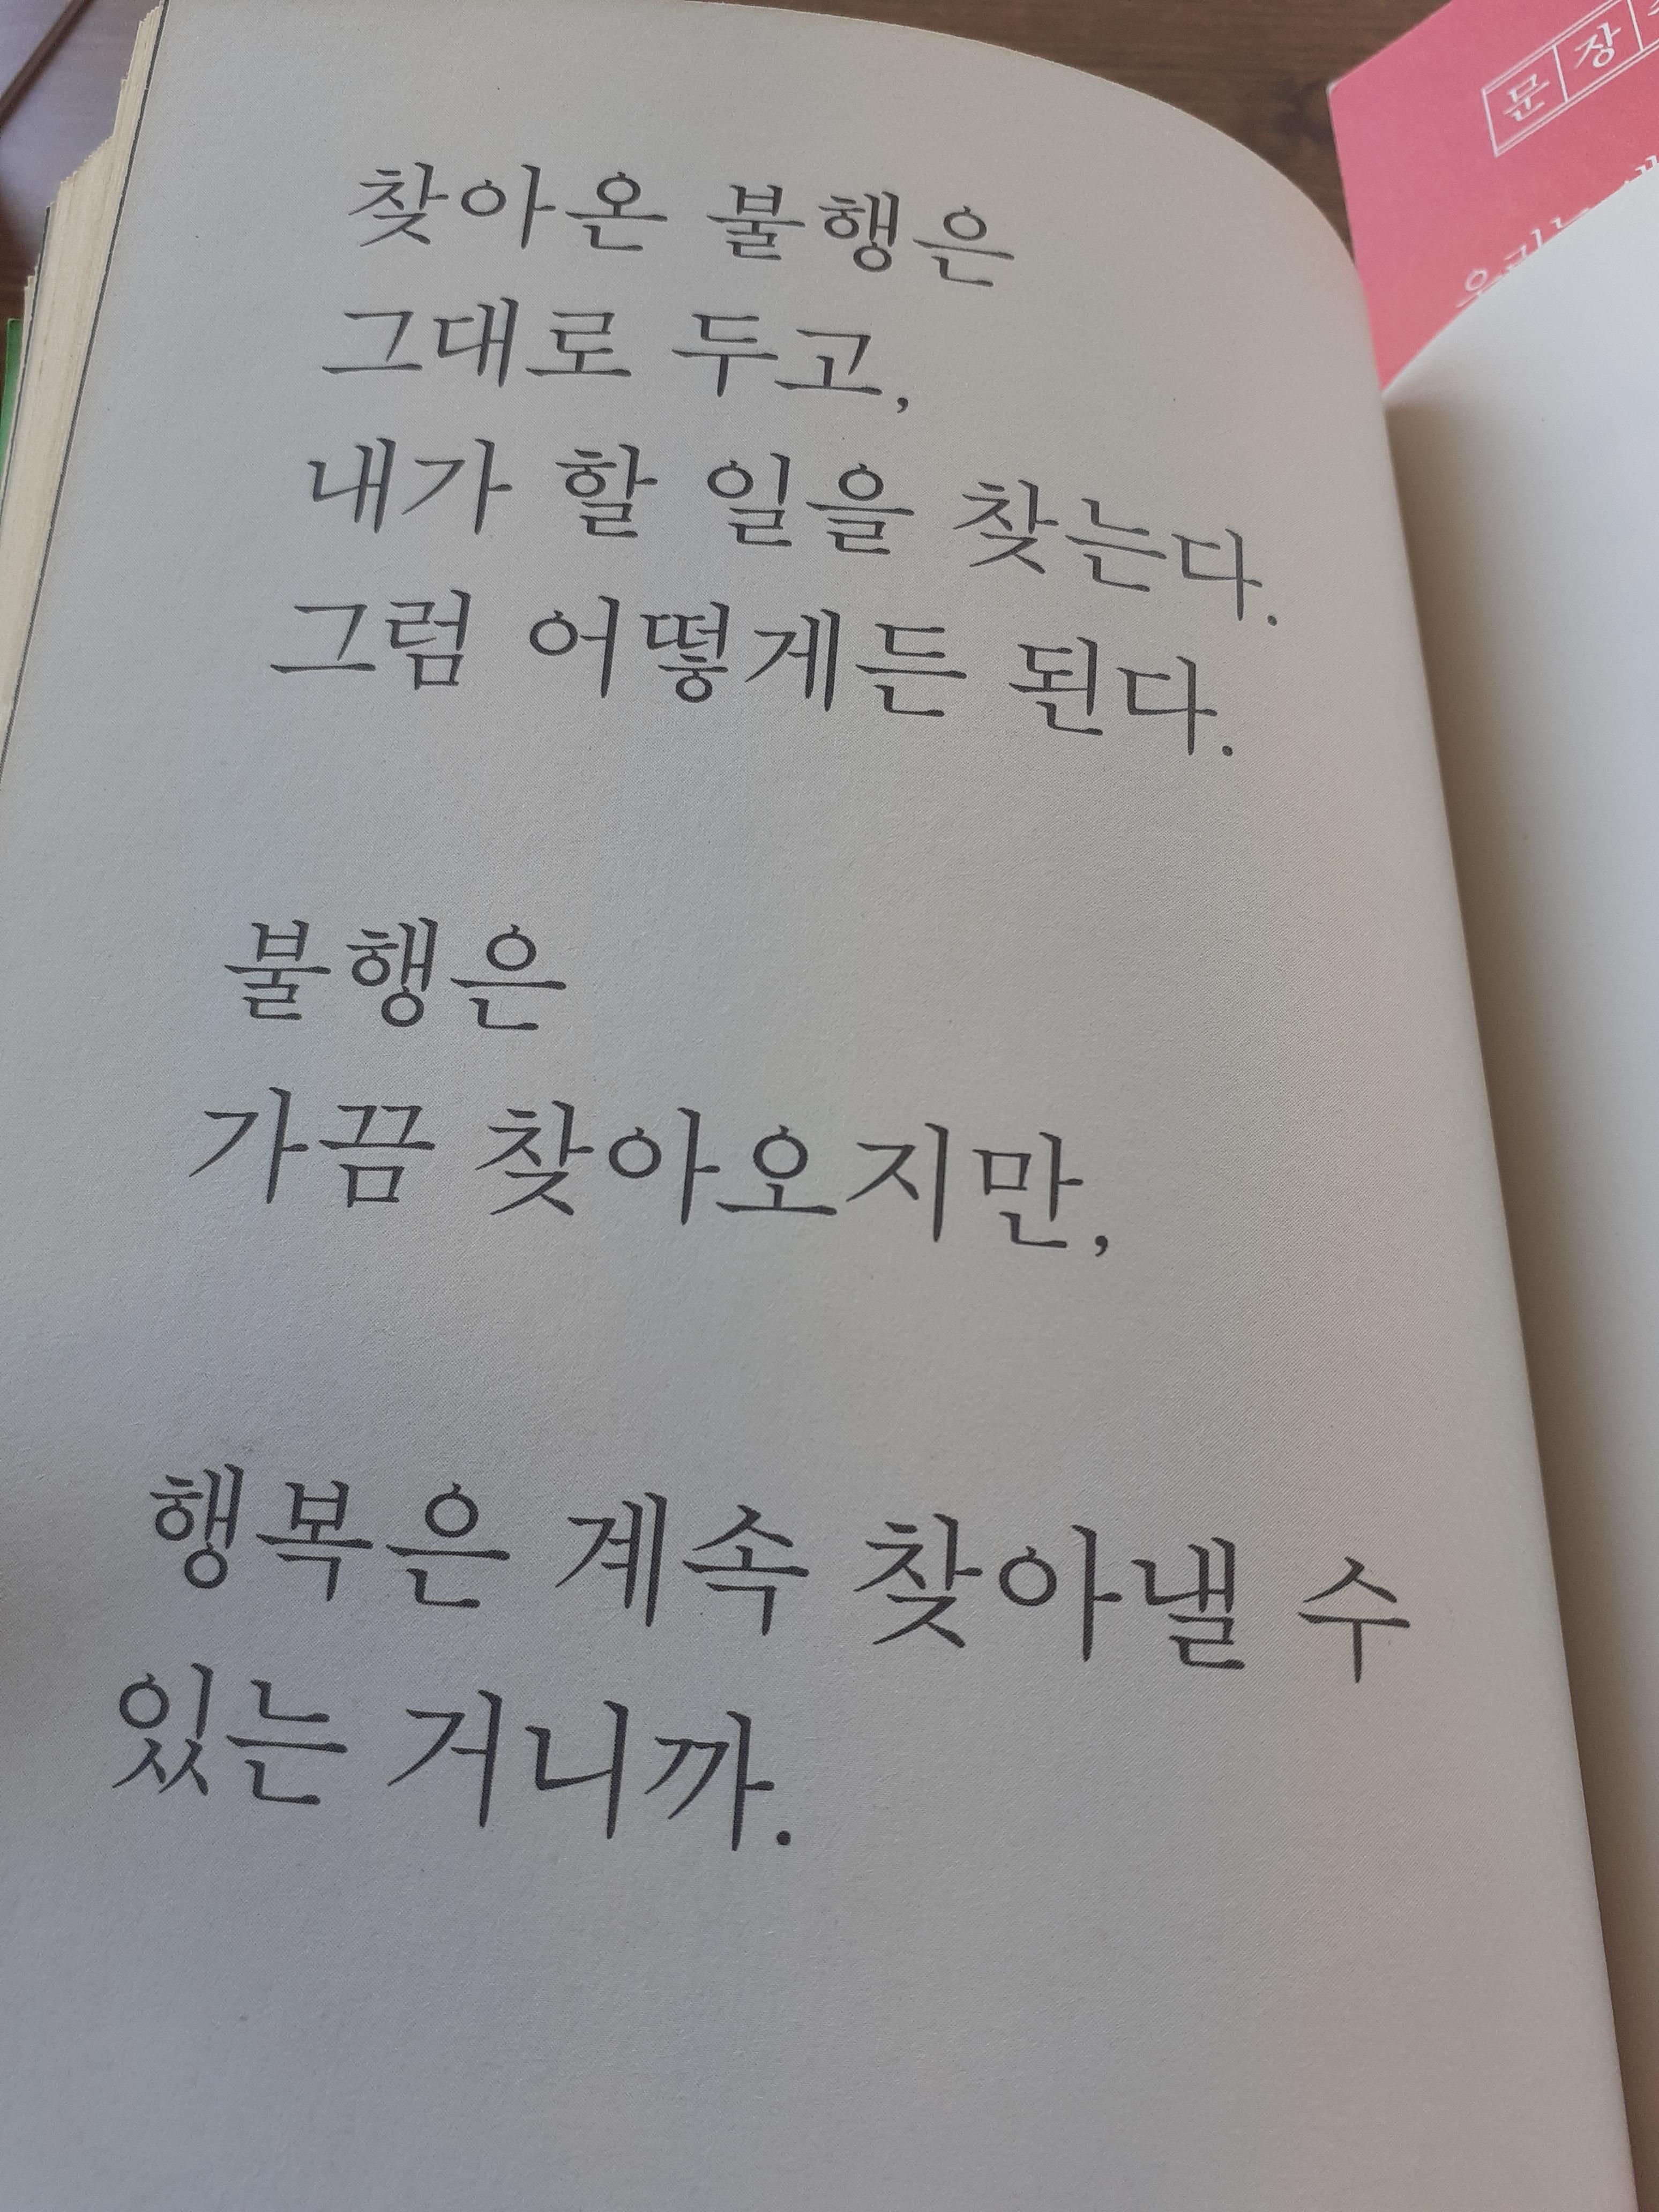 찾아온 불행은
그대로 두고,
내가 할 일을 찾는다.
그럼 어떻게든 된다.
불행은
가끔 찾아오지만,
행복은 계속 찾아낼 수
있는 거니까.
문장